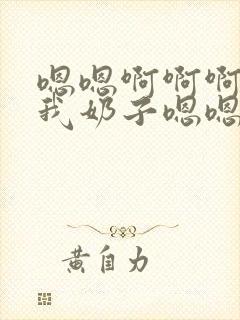 嗯嗯啊啊啊
我奶子嗯嗯
黄自力